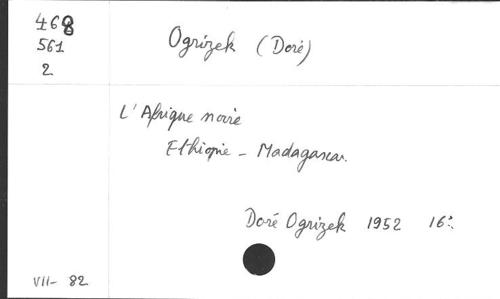 468
561
2
Ogrizek (Doré)
L'Afrique noire
Ethiopie - Madagascar.
Doré Ogrizek 1952 16º.
VII- 82